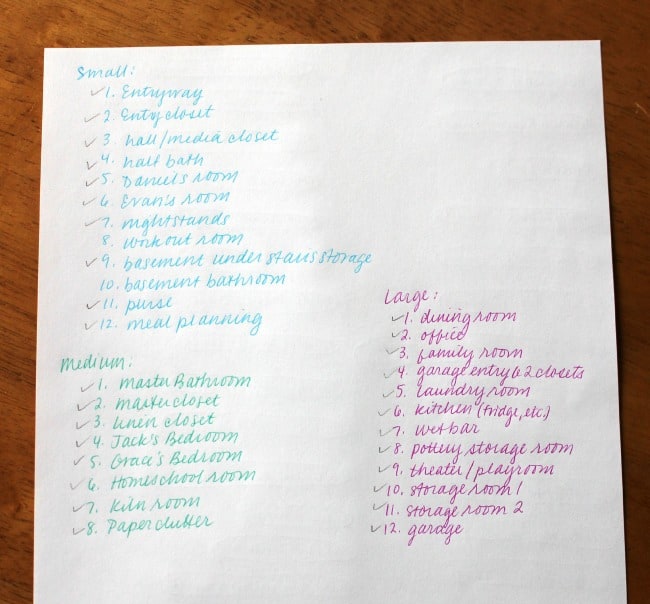 Small:
✓1. Entryway
✓2. Entry closet
✓3. hall/media closet
✓4. half bath
✓5. Daniel's room
✓6. Evan's room
✓7. nightstands
8. workout room
✓9. basement under stairs storage
10. basement bathroom
✓11. purse
✓12. meal planning
Medium:
✓1. Master Bathroom
✓2. master closet
✓3. linen closet
✓4. Jack's Bedroom
✓5. Grace's Bedroom
✓6. Homeschool room
✓7. Kiln room
✓8. Paper clutter
Large:
✓1. dining room
✓2. office
✓3. family room
✓4. garage entry & 2 closets
✓5. laundry room
✓6. kitchen (fridge, etc.)
✓7. wet bar
✓8. pottery storage room
✓9. theater/playroom
✓10. storage room 1
✓11. storage room 2
✓12. garage